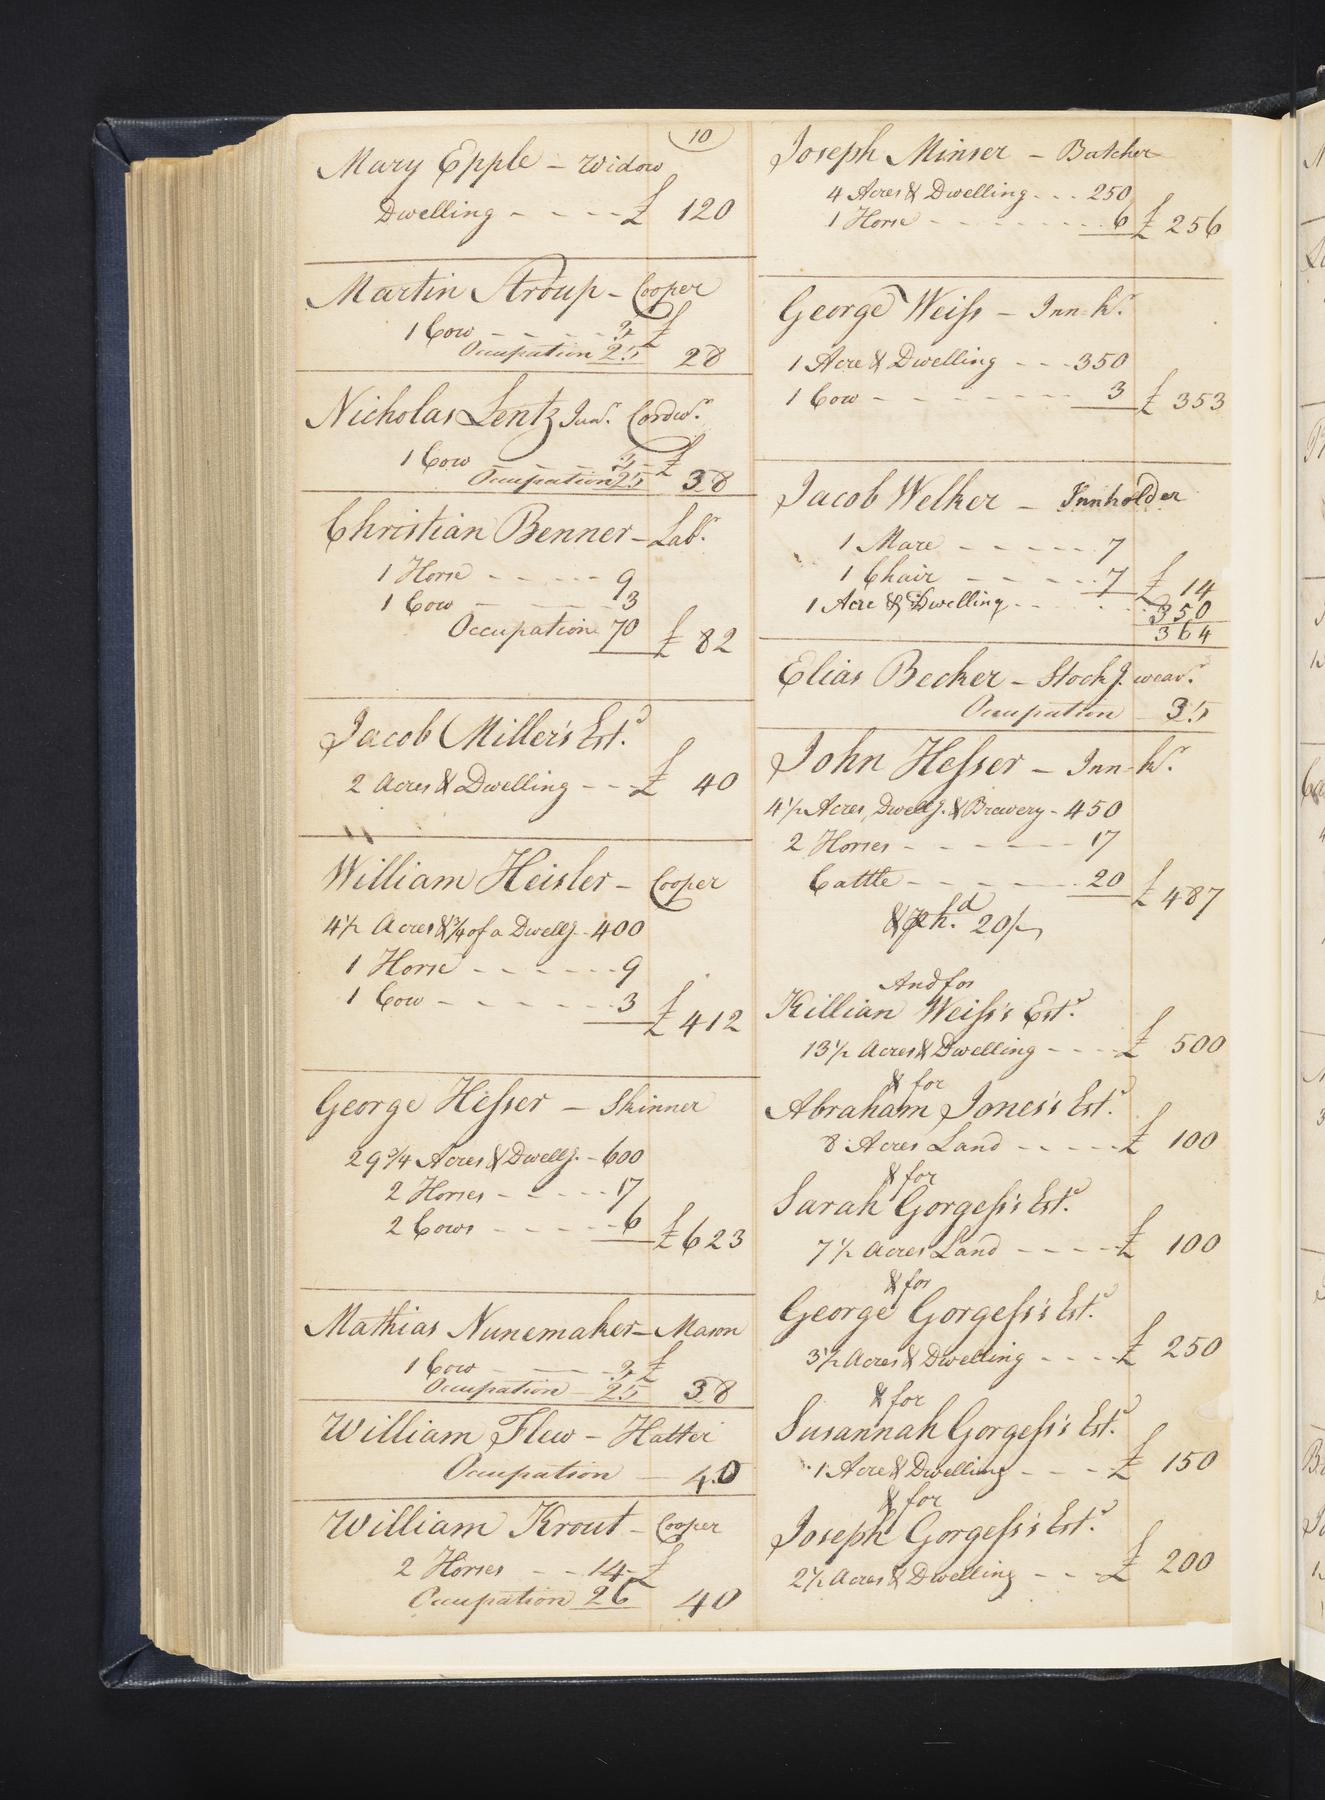 10
Mary Epple - Widow
Dwelling - - - - £ 120
Martin Stroup - Cooper
1 Cow - - - - 3 £
Occupation 25 28
Nicholas Lentz Junr. Cordwr.
1 Cow - - - 3 - £
Occupation 25 38
Christian Benner - Labr.
1 Horse - - - - 9
1 Cow - - - 3
Occupation 70 £ 82
Jacob Miller's Estd.
2 Acres & Dwelling - - - £ 40
William Heisler - Cooper
4½ Acres & ¾ of a Dwellg. - 400
1 Horse - - - - - 9
1 Cow - - - - - 3 £ 412
George Hesser - Skinner
29¾ Acres & Dwellg. - 600
2 Horses - - - - - 17
2 Cows - - - - - 6 £ 623
Mathias Nunemaker - Mason
1 Cow - - - 3 £
Occupation - 25 38
William Flew - Hatter
Occupation - 40
William Krout - Cooper
2 Horses - - 14 - £
Occupation 26 40
Joseph Minser - Butcher
4 Acres & Dwelling - - - 250
1 Horse - - - - - - - 6 £ 256
George Weiss - Inn-kr.
1 Acre & Dwelling - - - 350
1 Cow - - - - - - - 3 £ 353
Jacob Welker - Innholder
1 Mare - - - - - - 7
1 Chair - - - - - 7 £ 14
1 Acre & Dwelling - - - - 350
364
Elias Becker - Stockg. weavr.
Occupation - 35
John Hesser - Inn-kr.
4½ Acres, Dwellg. & Brewery - 450
2 Horses - - - - - - 17
Cattle - - - - - - 20 £ 487
20/-
And for
Killian Weiss's Estd.
13½ Acres & Dwelling - - - £ 500
& for
Abraham Jones's Estd.
8 Acres Land - - - - - £ 100
& for
Sarah Gorgess's Estd.
7½ Acres Land - - - - £ 100
& for
George Gorgess's Estd.
3½ Acres & Dwelling - - - - £ 250
& for
Susannah Gorgess's Estd.
1 Acre & Dwelling - - - £ 150
& for
Joseph Gorgess's Estd.
2½ Acres & Dwelling - - - £ 200